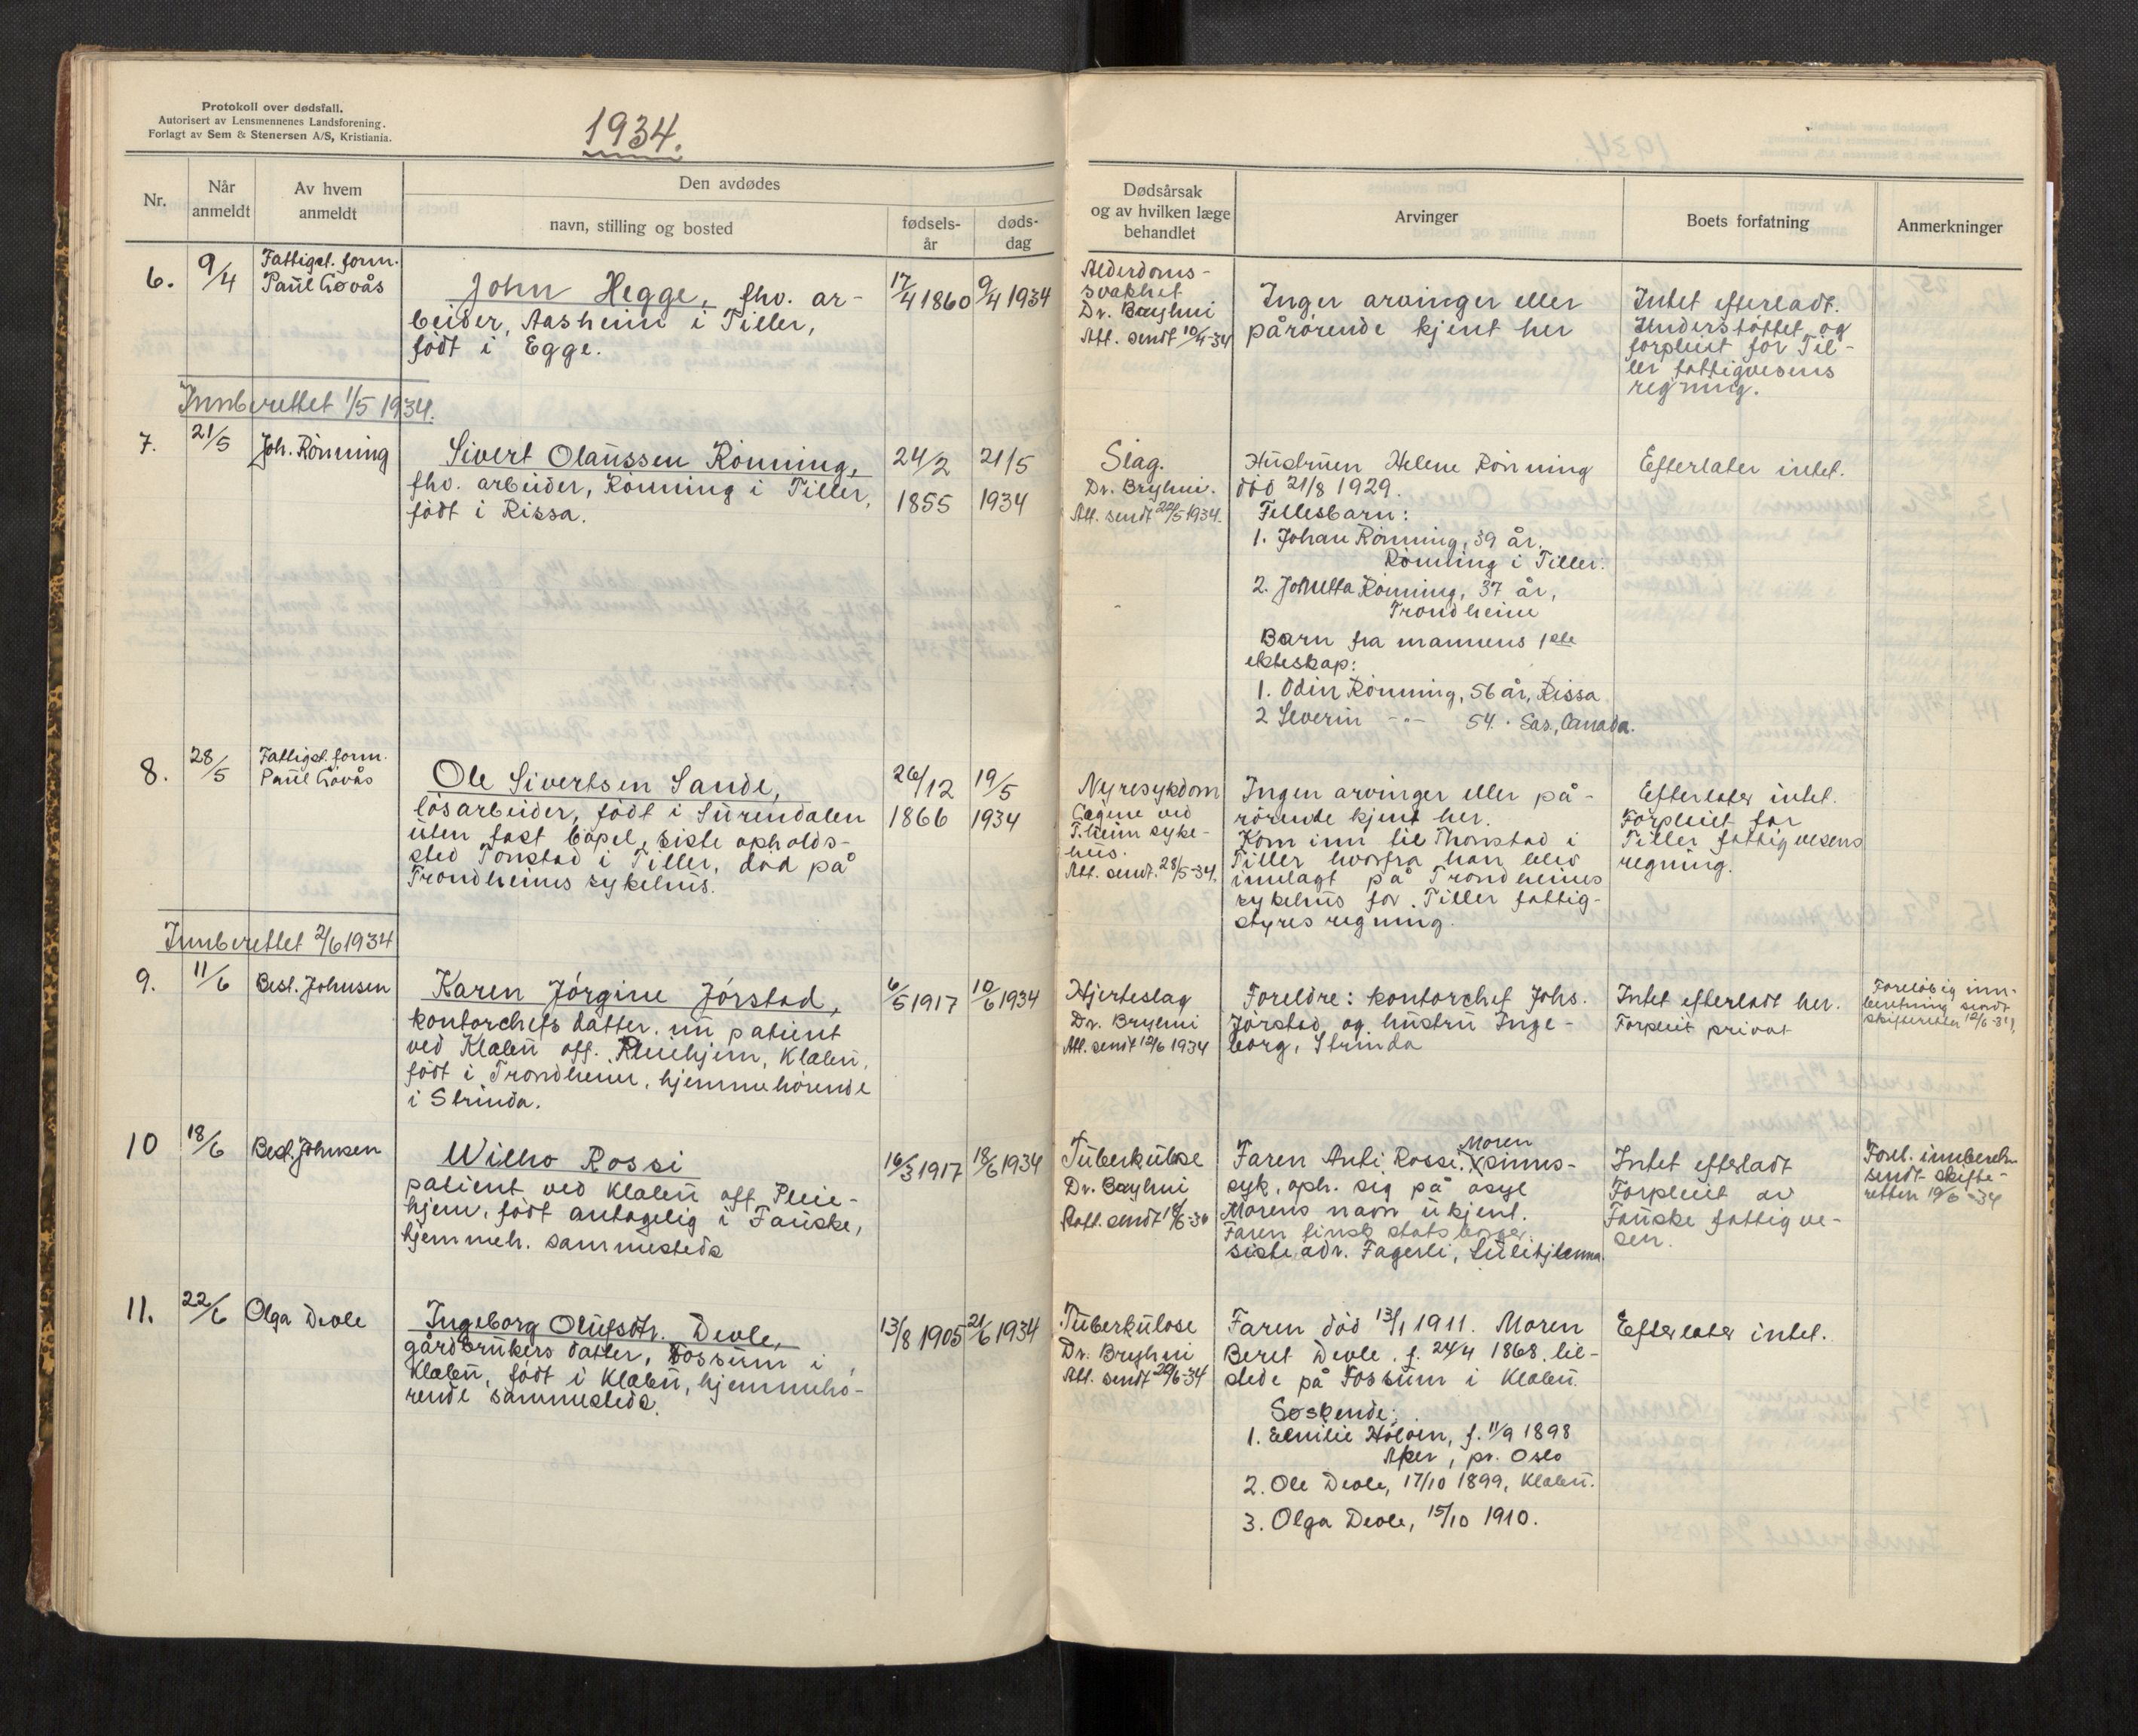 Protokoll over dødsfall.
Autorisert av Lensmennenes Landsforening.
Forlagt av Sem & Stenersen A/S, Kristiania.
1934.
Nr.
Når
anmeldt
Av hvem
anmeldt
Den avdødes
navn, stilling og bosted
fødsels-
år
døds-
dag
Dødsårsak
og av hvilken læge
behandlet
Arvinger
Boets forfatning
Anmerkninger
6.
9/4
Fattigst. form.
Paul Løvås
John Hegge, fhv. ar-
beider, Aasheim i Tiller,
født i Egge.
17/4 1860
9/4 1934
Alderdoms-
svakhet
Dr. Bryhni
Att. sendt 10/4-34
Inger arvinger eller
pårørende kjent her
Intet efterladt.
Understøttet og
forpleiet for Til-
ler fattigvesens
regning.
Innberettet 1/5 1934.
7.
21/5
Joh. Rönning
Sivert Olaussen Rönning,
fhv. arbeider, Rönning i Tiller,
født i Rissa.
24/2
1855
21/5
1934
Slag.
Dr. Bryhni.
Att. sendt 22/5 1934.
Hustruen Helene Rönning
död 21/8 1929.
Fellesbarn:
1. Johan Rönning, 39 år,
Rönning i Tiller.
2. Jonetta Rönning, 37 år,
Trondheim
Barn fra mannens 1ste
ekteskap:
1. Odin Rönning, 56 år, Rissa
2 Severin -"- 54 . Sas., Canada.
Efterlater intet.
8.
28/5
Fattigst. form.
Paul Løvås
Ole Sivertsen Sande,
løsarbeider, født i Surendalen
uten fast bopel, siste opholds-
sted Tonstad i Tiller, død på
Trondheims sykehus.
26/12
1866
19/5
1934
Nyresykdom
Lægene ved
T.heim syke-
hus.
Att. sendt. 28/5-34.
Ingen arvinger eller på-
rørende kjent her.
Kom inn til Thonstad i
Tiller hvorfra han blev
innlagt på Trondheims
sykehus for Tiller fattig-
styres regning.
Efterlater intet.
Forpleiet for
Tiller fattigvesens
regning.
Innberettet 2/6 1934
9.
11/6
Best. Johnsen
Karen Jørgine Jørstad,
kontorchefs datter. nu patient
ved Klæbu off. Pleiehjem, Klæbu,
født i Trondheim, hjemmehørende
i Strinda.
6/5 1917
10/6 1934
Hjerteslag
Dr. Bryhni
Att. sendt 12/6 1934
Foreldre: kontorchef Johs.
Jørstad og hustru Inge-
borg, Strinda
Intet efterladt her.
Forpleiet privat
Foreløbig inn-
beretning sendt
skifteretten 12/6-34
10
18/6
Best. Johnsen
Wilho Rossi
patient ved Klæbu off. Pleie-
hjem, født antagelig i Fauske,
hjemmeh. sammesteds
16/3 1917
18/6 1934
Tuberkulose
Dr. Bryhni
Faren Anti Rossi. Moren sinns-
syk, oph. sig på asyl
Morens navn ukjent.
Faren finsk statsborger.
siste adr. Fagerli,
Intet efterladt
Forpleiet av
Fauske fattigve-
sen.
Forel. innberetn.
sendt skifte-
retten 19/6-34
11.
22/6
Olga Devle
Ingeborg Olufsdtr. Devle,
gårdbrukers datter, Fossum i
Klæbu, født i Klæbu, hjemmehø-
rende sammesteds.
13/8 1905
21/6 1934
Tuberkulose
Dr. Bryhni
Faren død 13/1 1911. Moren
Beret Devle. f. 24/4 1868. til-
stede på Fossum i Klæbu.
Søskende:
1. Emilie Hølven, f. 11/9 1898
Aker, pr. Oslo
2. Ole Devle, 17/10 1899, Klæbu.
3. Olga Devle, 15/10 1910.
Efterlater intet.